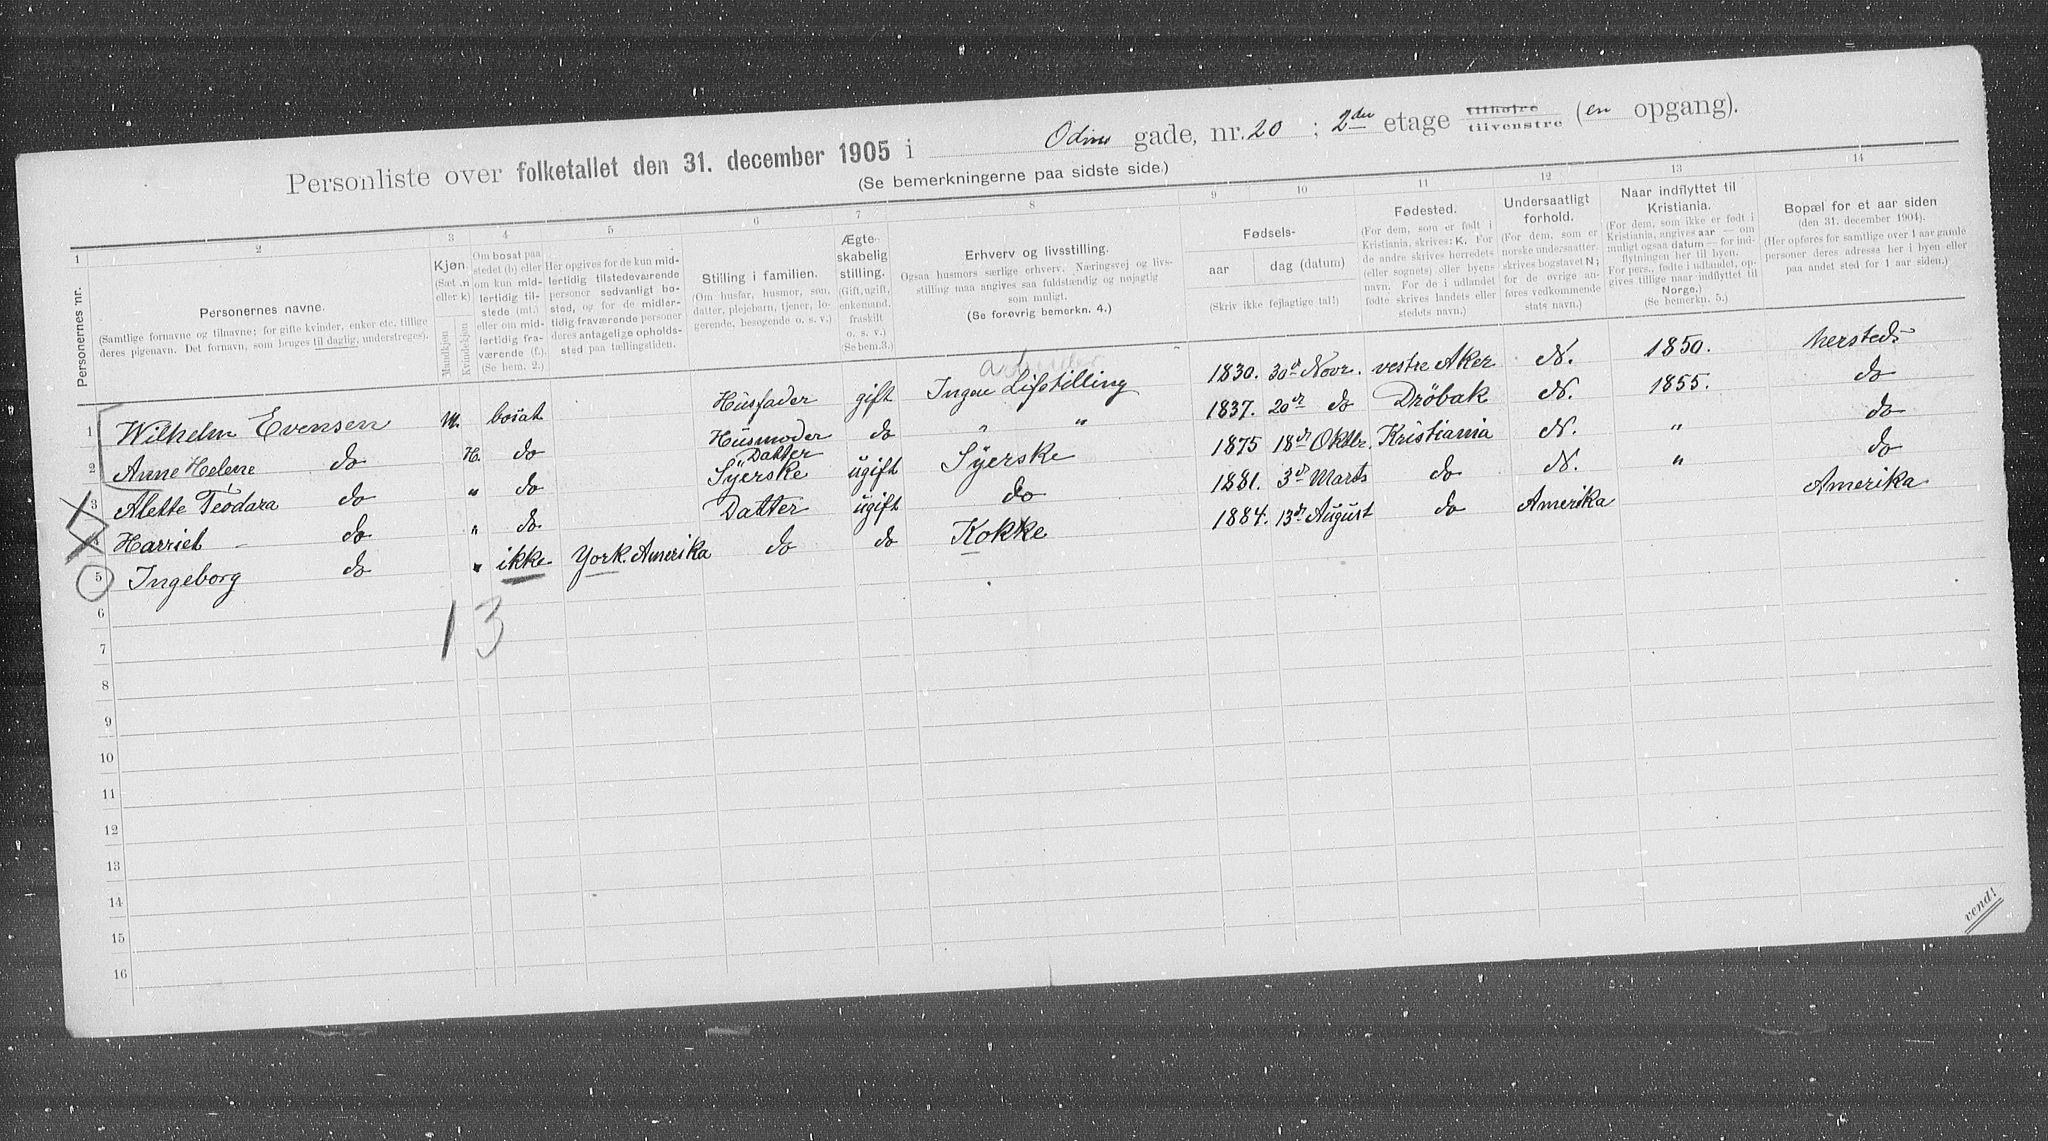 Personliste over folketallet den 31. december 1905 i Odins gade, nr. 20 ; 2den etage tilhøire tilvenstre (en opgang).
(Se bemerkningerne paa sidste side.)
1 2 3 4 5 6 7 8 9 10 11 12 13 14
Personernes nr.
Personernes navne.
(Samtlige fornavne og tilnavne; for gifte kvinder, enker etc. tillige
deres pigenavn. Det fornavn, som bruges til daglig, understreges).
Kjøn.
(Sæt m
eller k)
Mandkjøn
Kvindekjøn
Om bosat paa
stedet (b) eller
om kun mid-
lertidig til-
stede (mt.)
eller om mid-
lertidig fra-
værende (f.).
(Se bem. 2.)
Her opgives for de kun mid-
lertidig tilstedeværende
personer sedvanligt bo-
sted, og for de midler-
tidig fraværende personer
deres antagelige opholds-
sted paa tællingstiden.
Stilling i familien.
(Om husfar, husmor, søn,
datter, plejebarn, tjener, lo-
gerende, besøgende o. s. v.)
Ægte-
skabelig
stilling.
(Gift, ugift,
enkemand,
fraskilt
o. s. v.)
(Se bem.3.)
Erhverv og livsstilling.
Ogsaa husmors særlige erhverv. Næringsvej og livs-
stilling maa angives saa fuldstændig og nøjagtig
som muligt.
(Se forøvrig bemerkn. 4.)
Fødsels-
aar dag (datum)
(Skriv ikke fejlagtige tal!)
Fødested.
(For dem, som er født i
Kristiania, skrives: K. For
de andre skrives herredets
(eller sognets) eller byens
navn. For de i udlandet
fødte skrives landets eller
stedets navn.)
Undersaatligt
forhold.
(For dem, som er
norske undersaatter,
skrives bogstavet N;
for de øvrige an-
føres vedkommende
stats navn.)
Naar indflyttet til
Kristiania.
(For dem, som ikke er født i
Kristiania, angives aar — om
muligt ogsaa datum — for ind-
flytningen her til byen.
For pers., fødte i udlandet, op-
gives tillige naar indflyttet til
Norge.)
(Se bemerkn. 5.)
Bopæl for et aar siden
(den 31. december 1904).
(Her opføres for samtlige over 1 aar gamle
personer deres adresse her i byen eller
paa andet sted for 1 aar siden.)
1 Wilhelm Evensen M. bosat Husfader gift Ingen Lifstilling 1830. 30d Novr. vestre Aker N. 1850.
2 Anne Helene do K. do Husmoder do " " 1837. 20d do Drøbak N. 1855. do
3 Alette Teodara do " do Datter Syerske ugift Syerske 1875 18d Oktbr. Kristiania N. " do
4 Harriet - do " do Datter ugift do 1881. 3d Marts do N. " do
5 Ingeborg do " ikke York. Amerika do do Kokke 1884. 13d August do Amerika Amerika
13
6
7
8
9
10
11
12
13
14
15
16
vend!